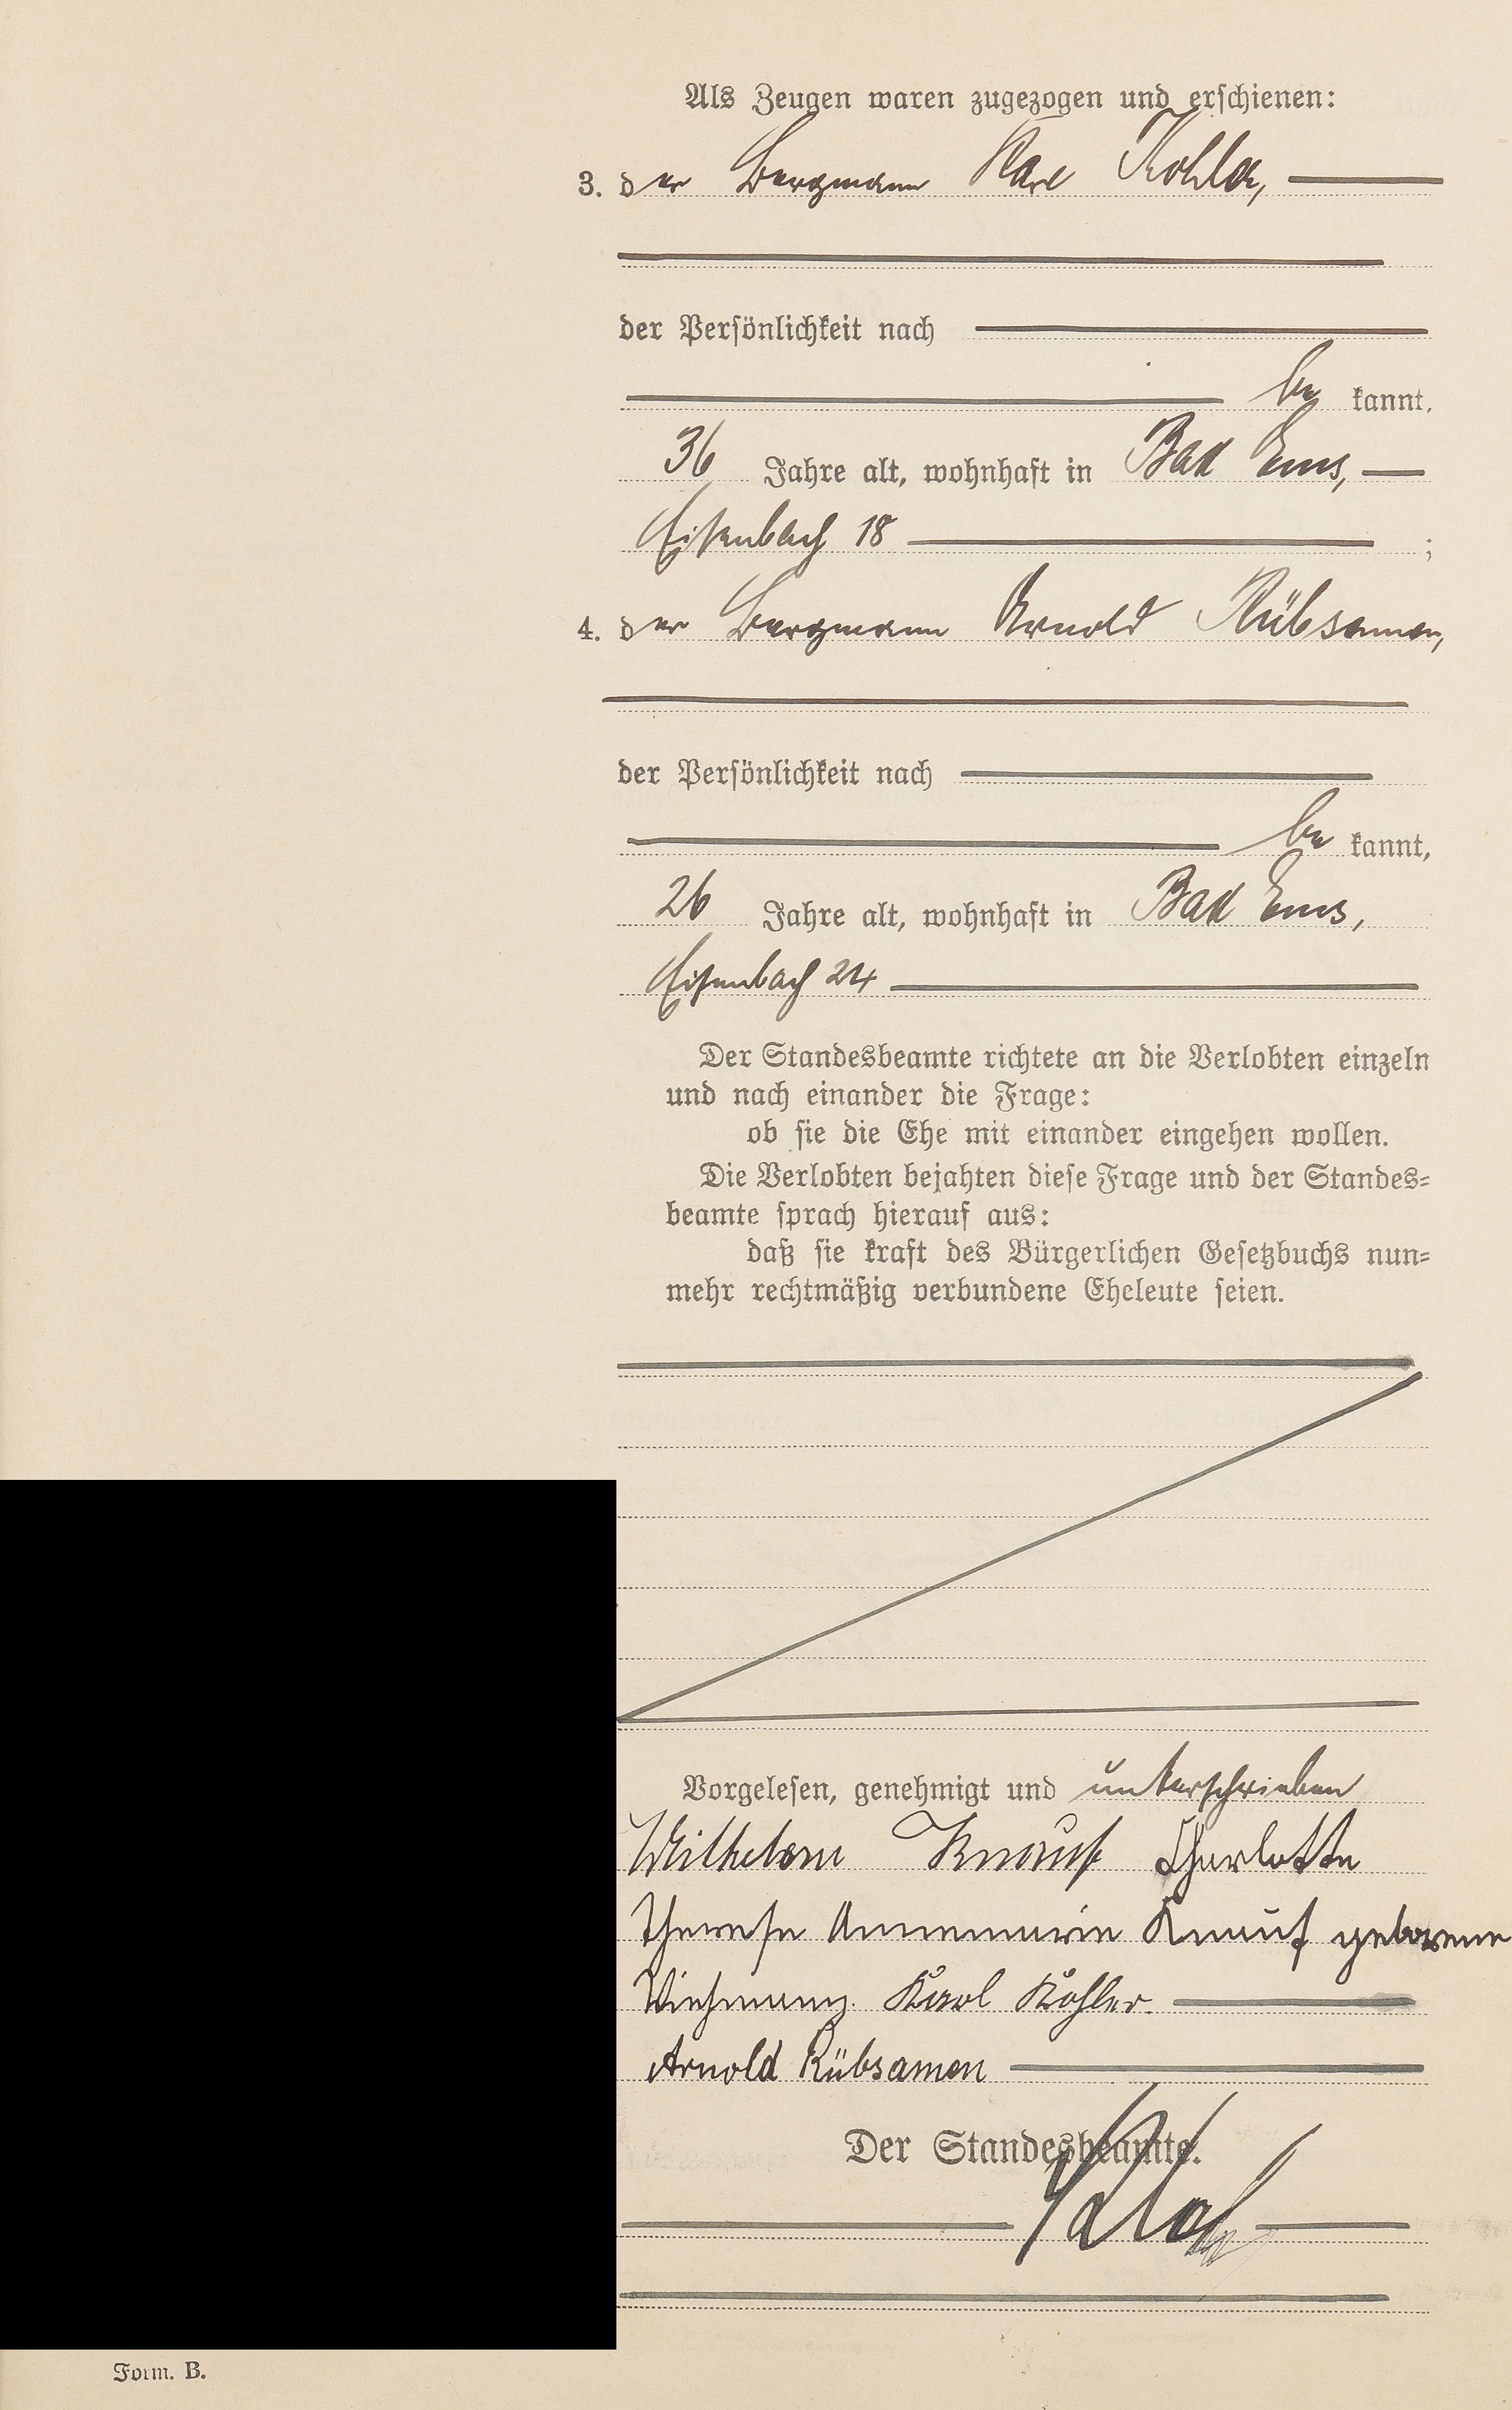 Als Zeugen waren zugezogen und erschienen:
3. der Bergmann Karl Kohler,
der Persönlichkeit nach
be kannt,
36 Jahre alt, wohnhaft in Bad Ems,
Eisenbach 18 ;
4. der Bergmann Arnold Rübsamen,
der Persönlichkeit nach
be kannt,
26 Jahre alt, wohnhaft in Bad Ems,
Eisenbach 24
Der Standesbeamte richtete an die Verlobten einzeln
und nach einander die Frage:
ob sie die Ehe mit einander eingehen wollen.
Die Verlobten bejahten diese Frage und der Standes-
beamte sprach hierauf aus:
daß sie kraft des Bürgerlichen Gesetzbuchs nun-
mehr rechtmäßig verbundene Eheleute seien.
Vorgelesen, genehmigt und unterschrieben
Wilhelm Knauf Charlotte
Therese Annemarie Knauf geborene
Karl Kohler.
Arnold Rübsamen
Der Standesbeamte.
Form. B.